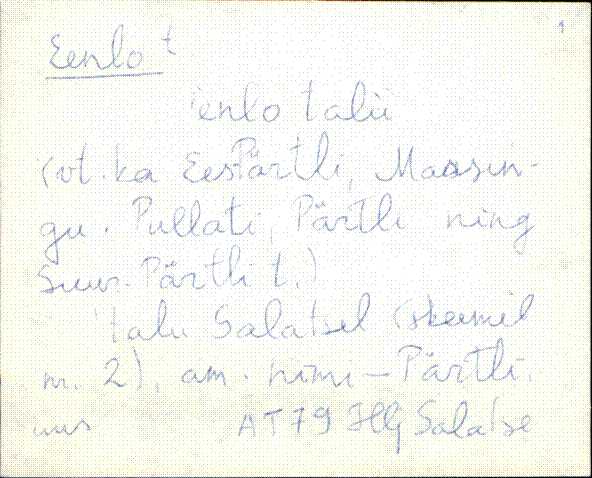 Eenlo t
1
'enlo talu
(vt. ka Ees-Pärtli, Maasin-
gu. Pullati, Pärtli ning
Suur-Pärtli t.)
talu Salatsel (skeemil
nr. 2), am. nimi - Pärtli.
uus AT79 Hlj Salatse